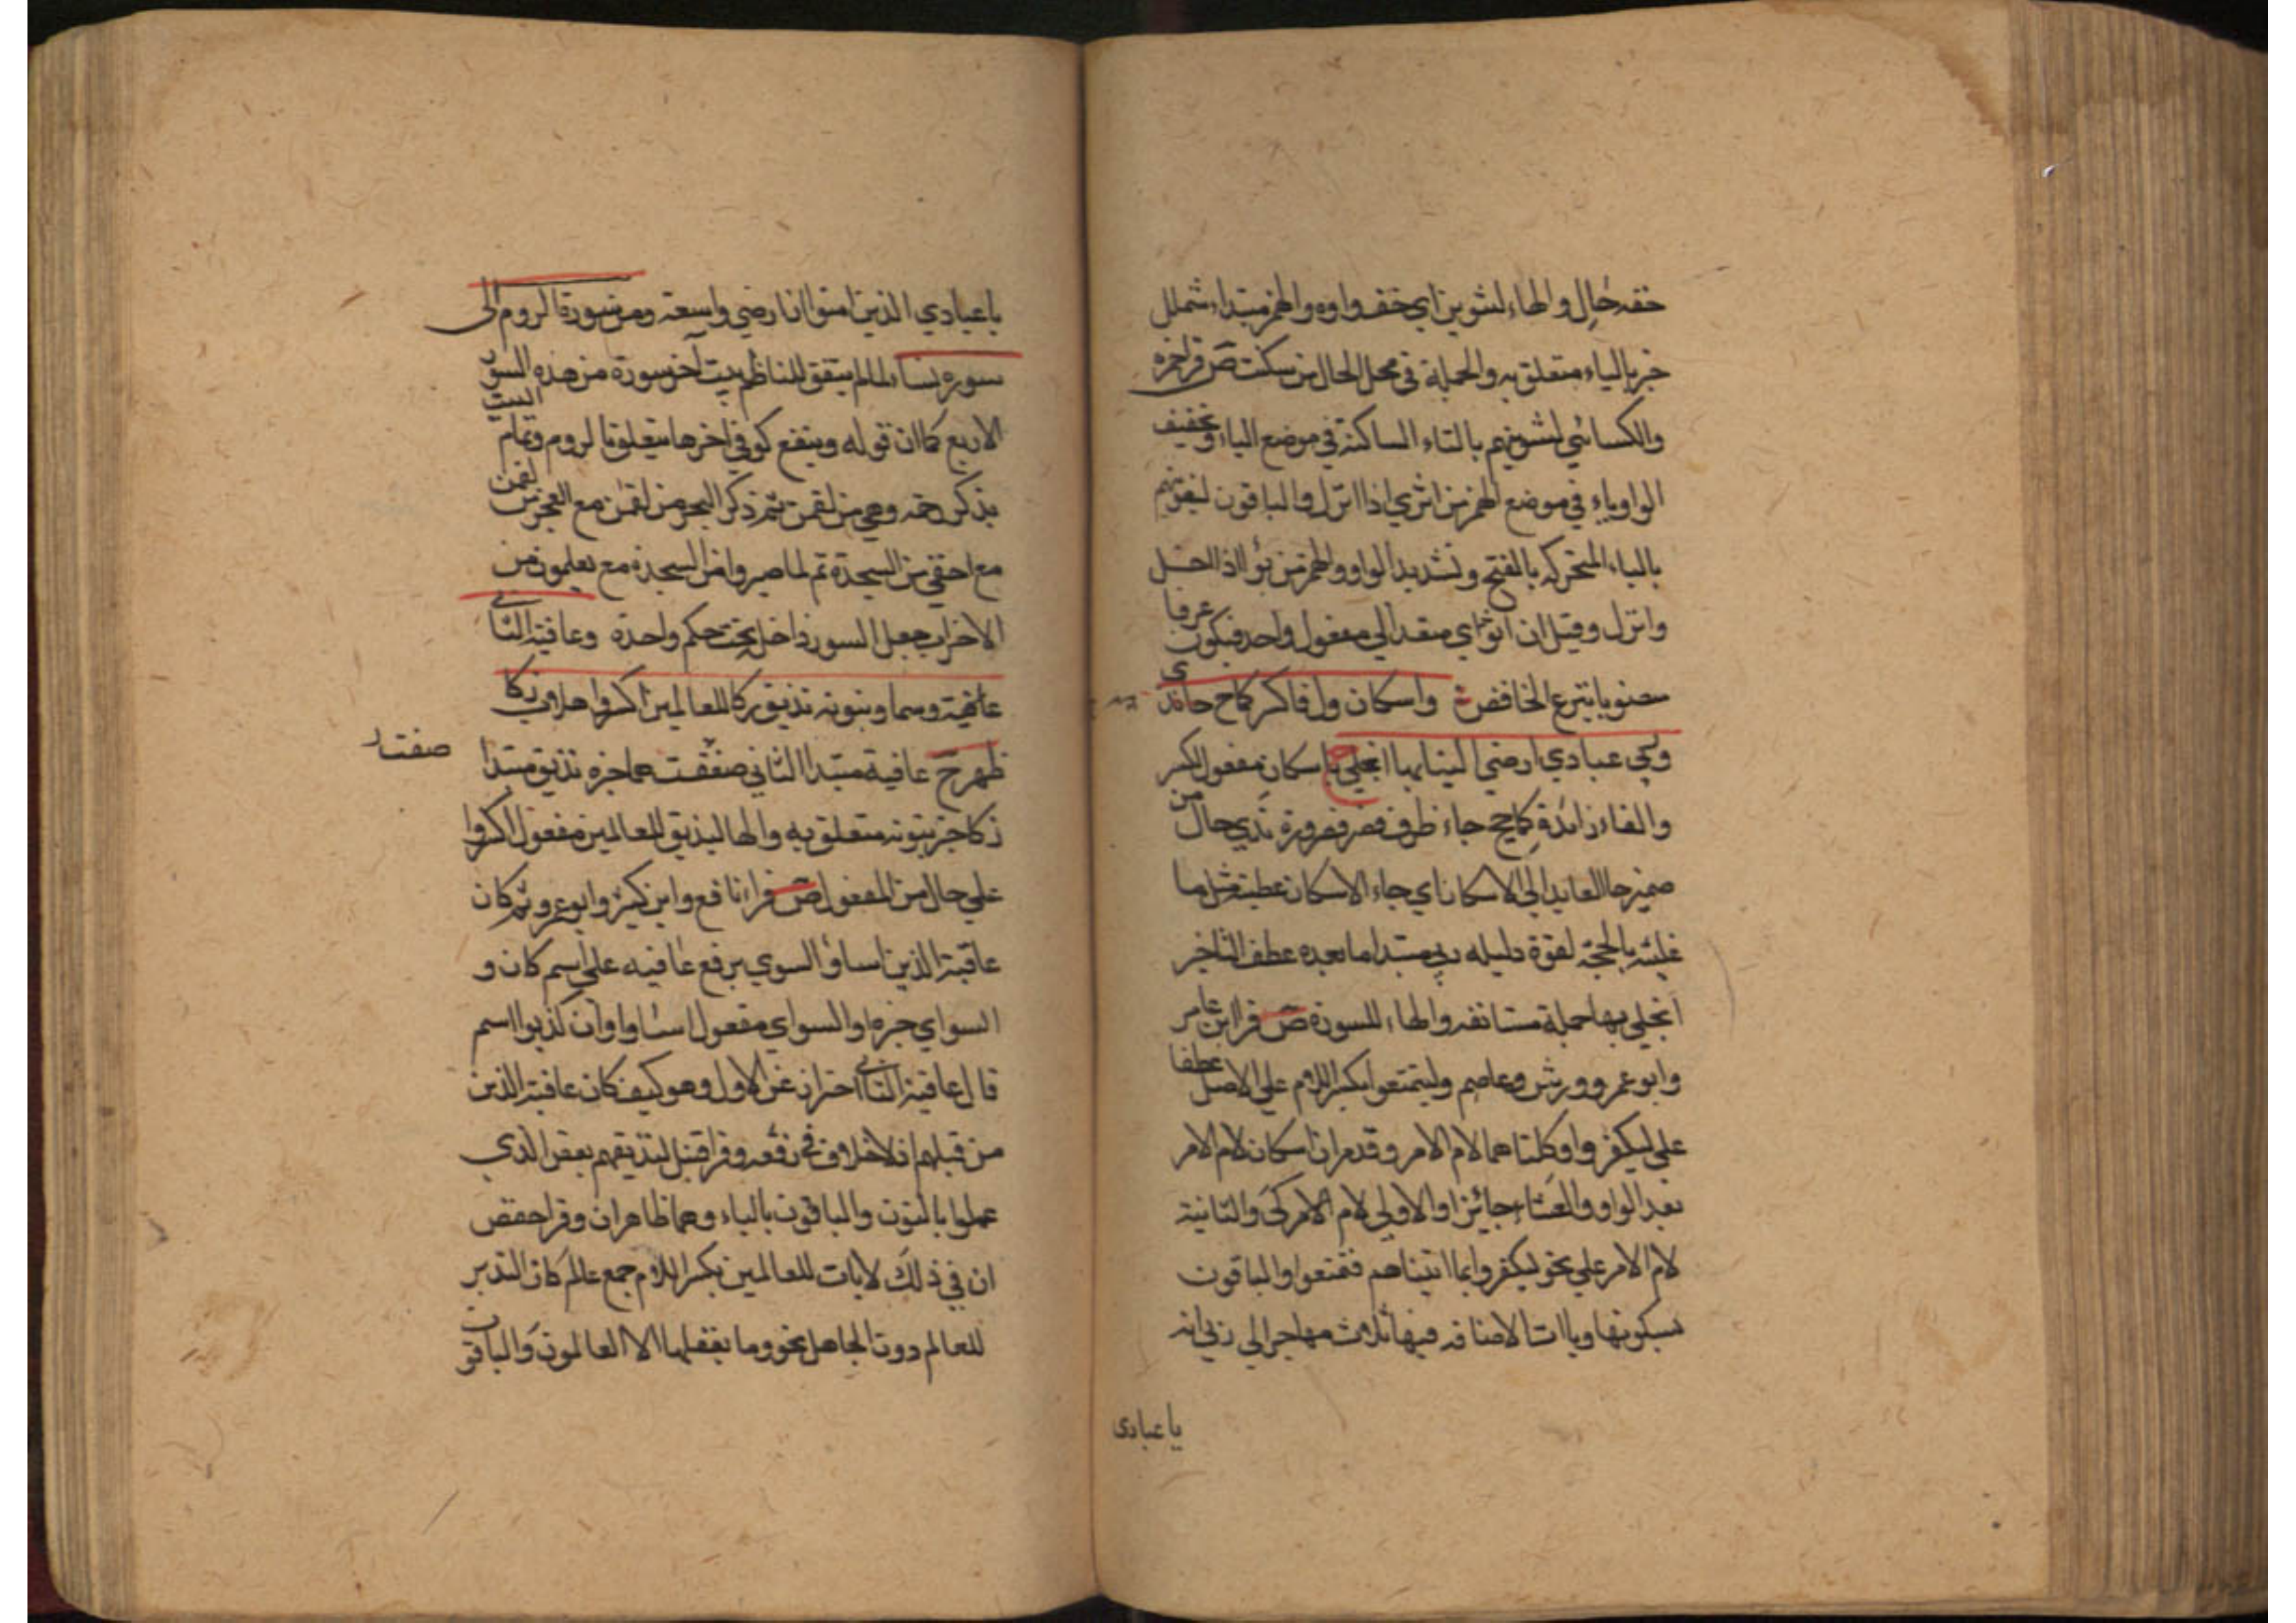 خفه حال والهاء لنثوين اي خفف واوه والهمز مبتداء شملل
خبر بالياء متعلق به والجملة في محل الحال من سكنت ص قرا حمزه
والكسائي لنثوينهم بالثاء الساكنة في موضع الباء وتخفيف
الواو وياء في موضع الهمز من اثري اذا انزل والباقون لنبوئنهم
بالباء المتحركه بالفتح وتشديد الواو والهمز من بوأ اذا احل
وانزل وقيل ان اثوي متعد الي مفعول واحد فيكون غرفا
منصوبا بنزع الخافض واسكان ول فاكسر كما حج جا ندى
وربي عبادي ارضي اليا بها انجلي ح اسكان مفعول اكسر
والفاء زائدة كما حج جاء ظرف قصر ضرورة ندي حال من
ضمير جا العايد الي الاسكان اي جاء الاسكان عطية مثل ما
غلبته بالحجة لقوة دليله ربي مبتدا ما بعده عطف الثا خبر
انجلي بها جملة مستانفه والهاء للسورة ص قرا ابن عامر
وابو عمرو وورش وعاصم وليتمتعوا بكسر اللام علي الاصل عطفا
علي ليكفروا وكلتاهما لام الامر وقد مر ان اسكان لام الامر
بعد الواو والفاء جائز او الاولي لام الامر كي والثانية
لام الامر علي نحو ليكفروا بما اتيناهم فتمتعوا والباقون
بسكونها وياات الاضافه فيها ثلاث مهاجر الي ربي انه
يا عبادى
يا عبادي الذين امنوا ان ارضي واسعة ومن سورة الروم الى
سورة سبا لما لم يتفق للناظم بيت آخر سورة من هذه السور
الاربع كما ان قوله وينفع كوفي اخرها يتعلق بالروم وتمام البيت
بذكر رحمه وهي من لقمن ثم ذكر البحر من لقمن مع العجز من لقمن
مع اخفي من السجدة ثم لما صبروا من السجدة مع يعلمون من
الاحزاب جعل السور داخل تحت حكم واحدة وعاقبة الثاني
عاقبة وسما وبنونه نذيق زكا للعالمين اكسروا علا زكا
ظهر ح عاقبة مبتدا الثاني صفت سما خبره نذيق مبتدا
صفتـر
زكا خبر بنونه متعلق به والها لنذيق للعالمين مفعول اكسروا
علي حال من المفعول ص قرا نافع وابن كثير وابو عمرو ثم كان
عاقبة الذين اساؤ السوي برفع عاقبه علي اسم كان و
السواي خبره او السواي مفعول اساوا وان كذبوا اسم
قال عاقبة الثاني احتراز عن الاول وهو كيف كان عاقبة الذين
من قبلهم اذ لا خلاف في رفعه وقرا قنبل لنذيقهم بعض الذي
عملوا بالنون والباقون بالياء وهما ظاهران وقرا حفص
ان في ذلك لايات للعالمين بكسر اللام جمع عالم كان التدبر
للعالم دون الجاهل نحو وما يعقلها الا العالمون والباقون